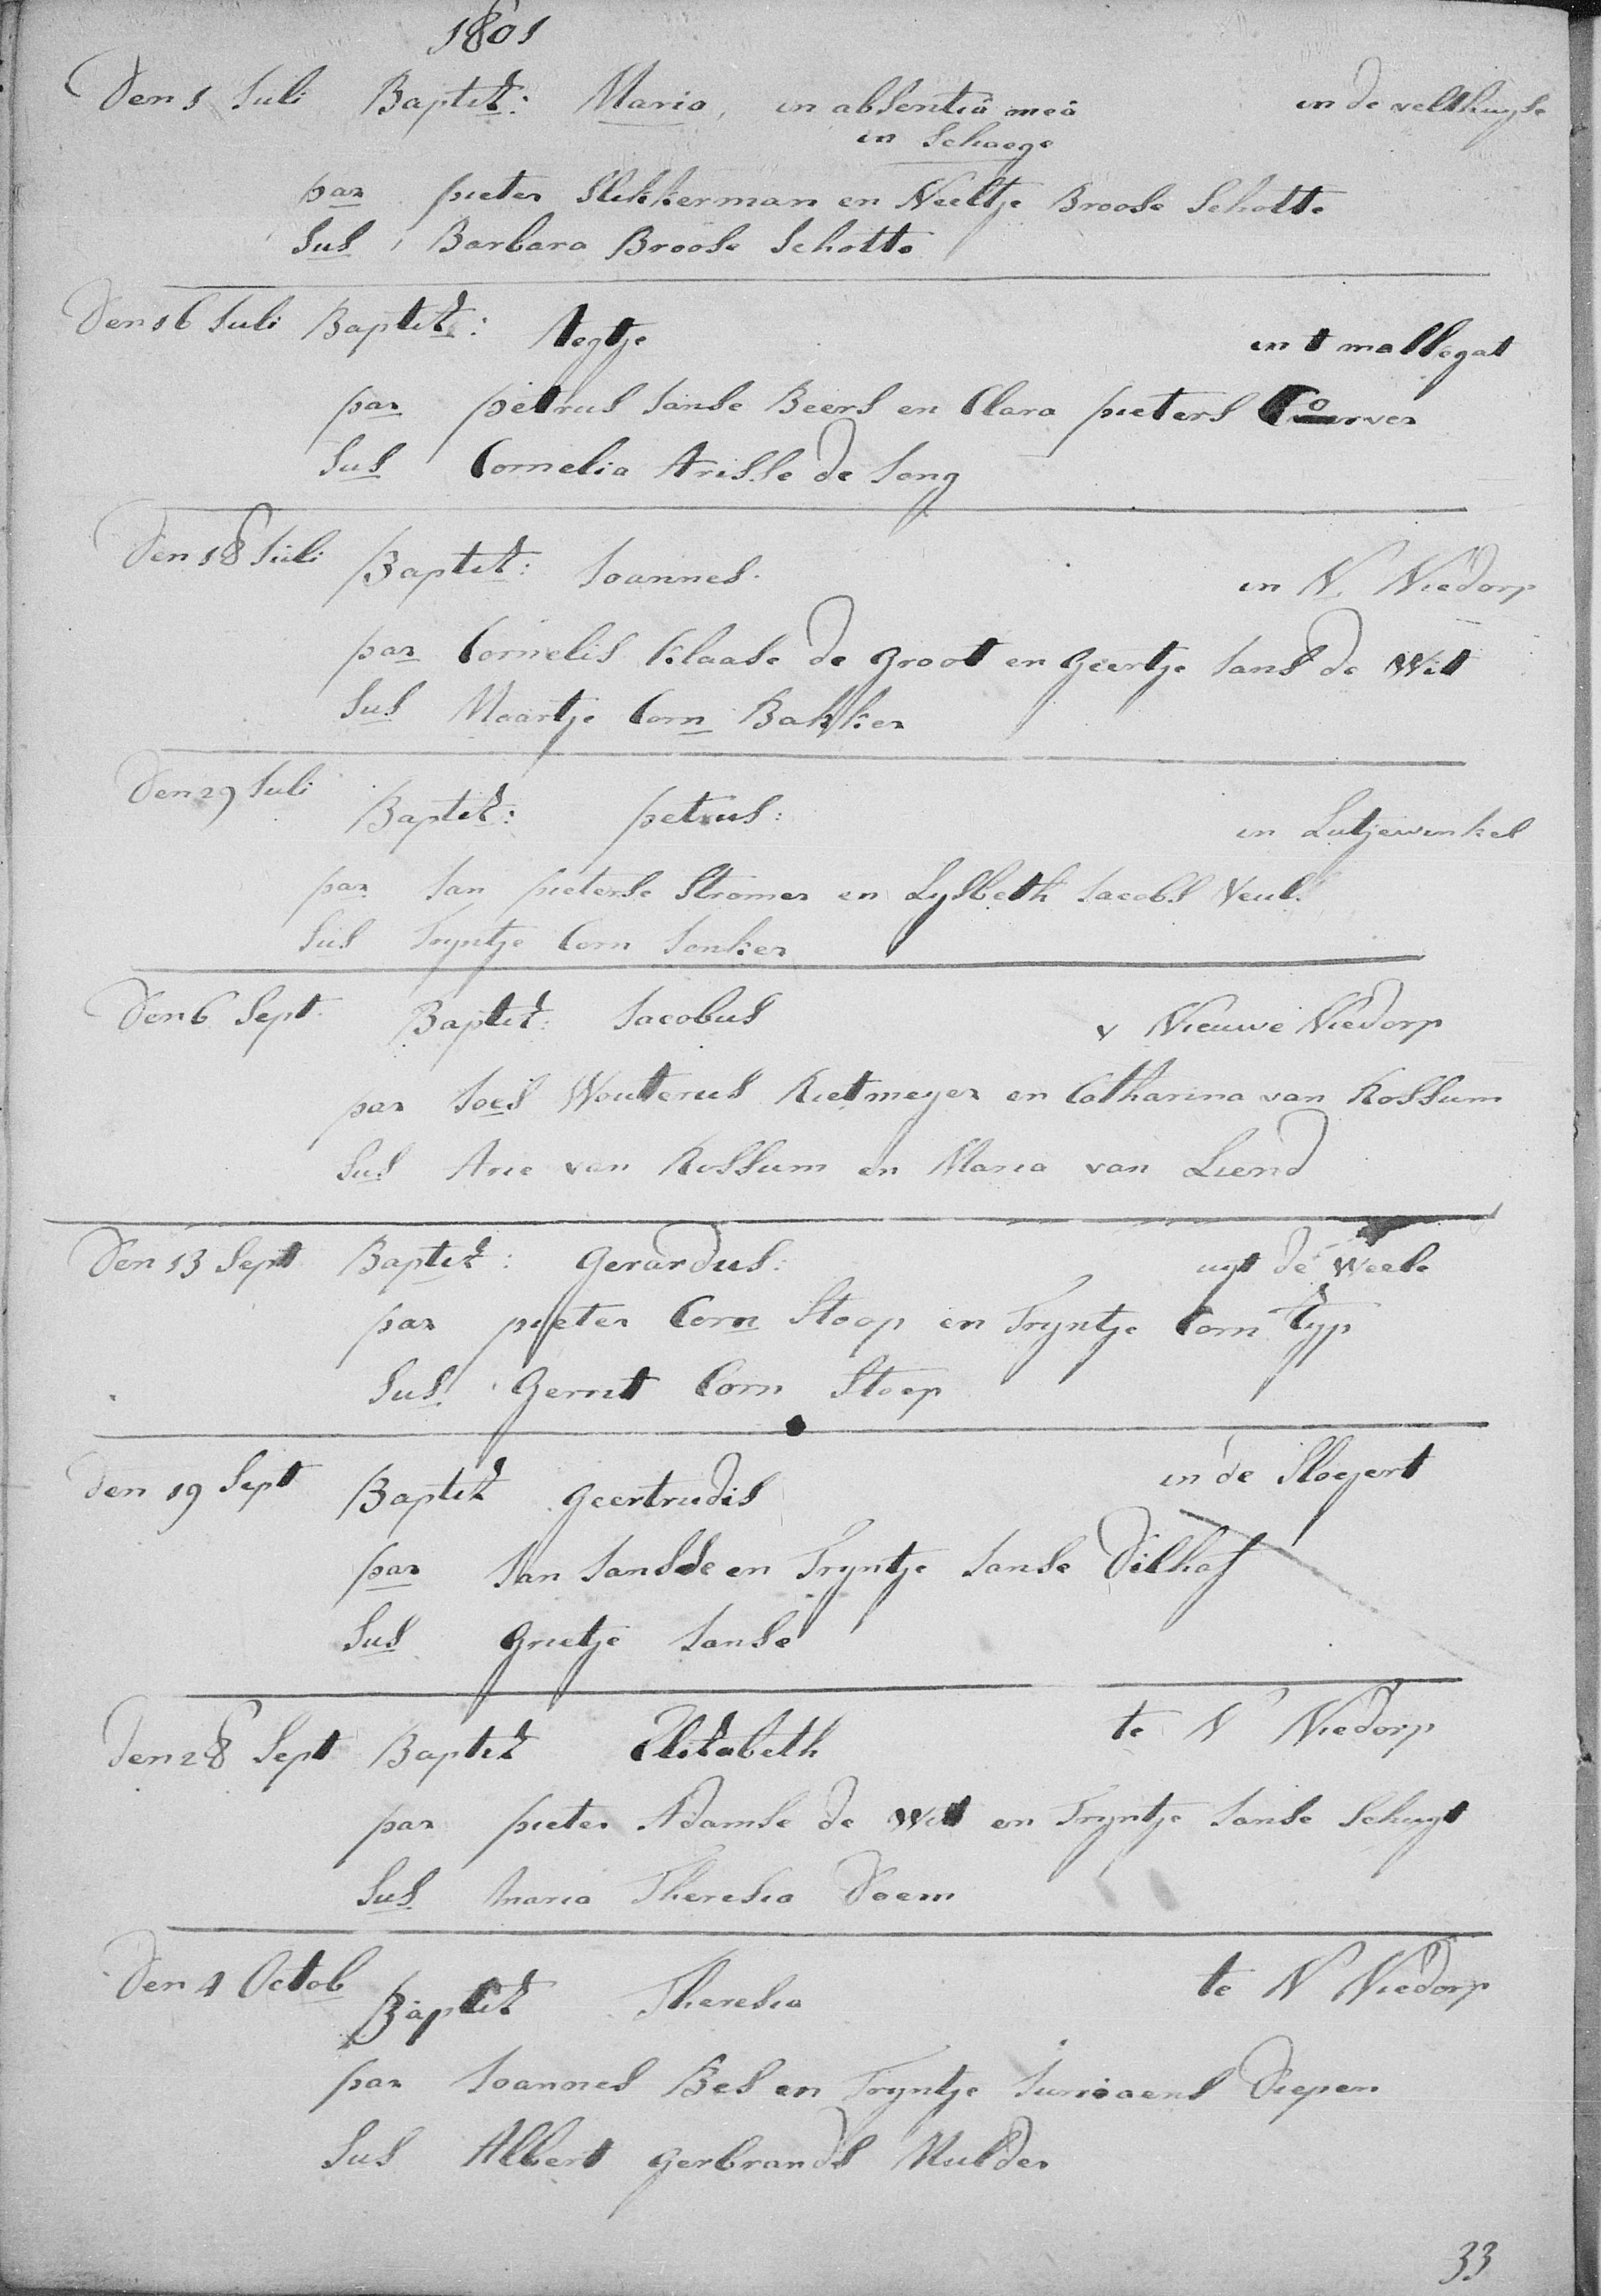 1801
Den 1 Juli Baptit: Maria, in absentiâ meâ in de velthuyse
in Schaege
par pieter Slikkerman en Neeltje Broose Schotte
Sus Barbara Broose Schotte
Den 16 Juli Baptit: Aegtje in t mallegat
par petrus Janse Beers en Clara pieters Corver
Sus Cornelia Arisse de Jong
Den 18 Juli Baptit: Joannes. in N. Niedorp
par Cornelis Klaase de Groot en Geertje Jans de Wit
Sus Maartje Corn Bakker
Den 29 Juli Baptit: petrus: in Lutjewinkel
par Jan pieterse Stromer en Lysbeth Jacobs Veul
Sus Tryntje Corn Jonker
Den 6 Sept Baptit: Jacobus v Nieuwe Niedorp
par Joes Wouterus Rietmeyer en Catharina van Rossum
Sus Arie van Rossum en Maria van Liend
Den 13 Sept Baptit: Gerardus: uyt de Weele
par pieter Corn Stoop en Tryntje Corn Typ
Sus Gerrit Corn Stoop
Den 19 Sept Baptit Geertrudis in de Slogert
par Jan Jansse en Tryntje Janse Dilhof
Sus Grietje Janse
Den 28 Sept Baptit Elisabeth te N Niedorp
par pieter Adamse de Wit en Tryntje Janse Schuyt
Sus Maria Theresia Doem
Den 4 Octob Baptit Theresia te N Niedorp
par Joannes Bes en Tryntje Jurriaens Diepen
Sus Albert Gerbrands Mulder
33